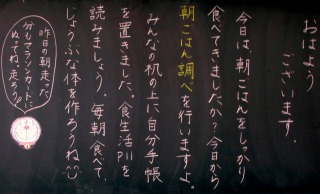 おはよう
ございます。
今日は朝ごはんをしっかり
食べてきましたか？今日から
朝ごはん調べを行いますよ。
みんなの机の上に自分手帳
を置きました。食生活P11を
読みましょう。毎朝食べて、
じょうぶな体を作ろうね
昨日の朝走った
分もマラソンカードに
ぬってね。走ろう!!